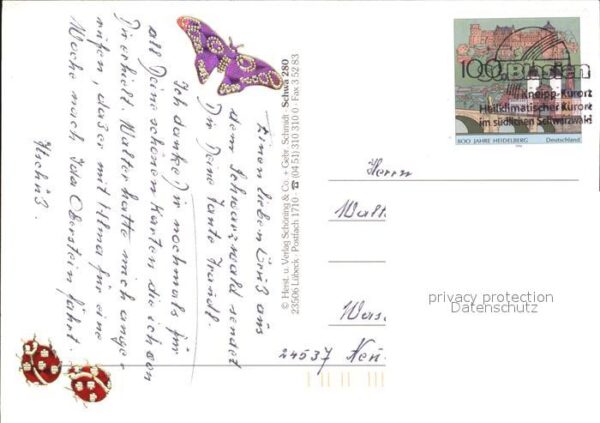 Einen lieben Gruß aus
dem Schwarzwald sendet
Dir Deine Tante Traudl
Ich danke Dir nochmals für
all Deine schönen Karten die ich von
Dir erhielt. Walter hatte mich ange-
rufen, daß er mit Ilma für eine
Woche nach Idar Oberstein fährt.
Tschüß.
© Herst. u. Verlag Schöning & Co. + Gebr. Schmidt · Schwa 280
23506 Lübeck · Postfach 1710 · ☎ (04 51) 310 310 0 · Fax 3 52 83
100
Kneipp-Kurort
Heilklimatischer Kurort
im südlichen Schwarzwald
800 JAHRE HEIDELBERG Deutschland
Herrn
Walt
Was
24537 Neu
privacy protection
Datenschutz